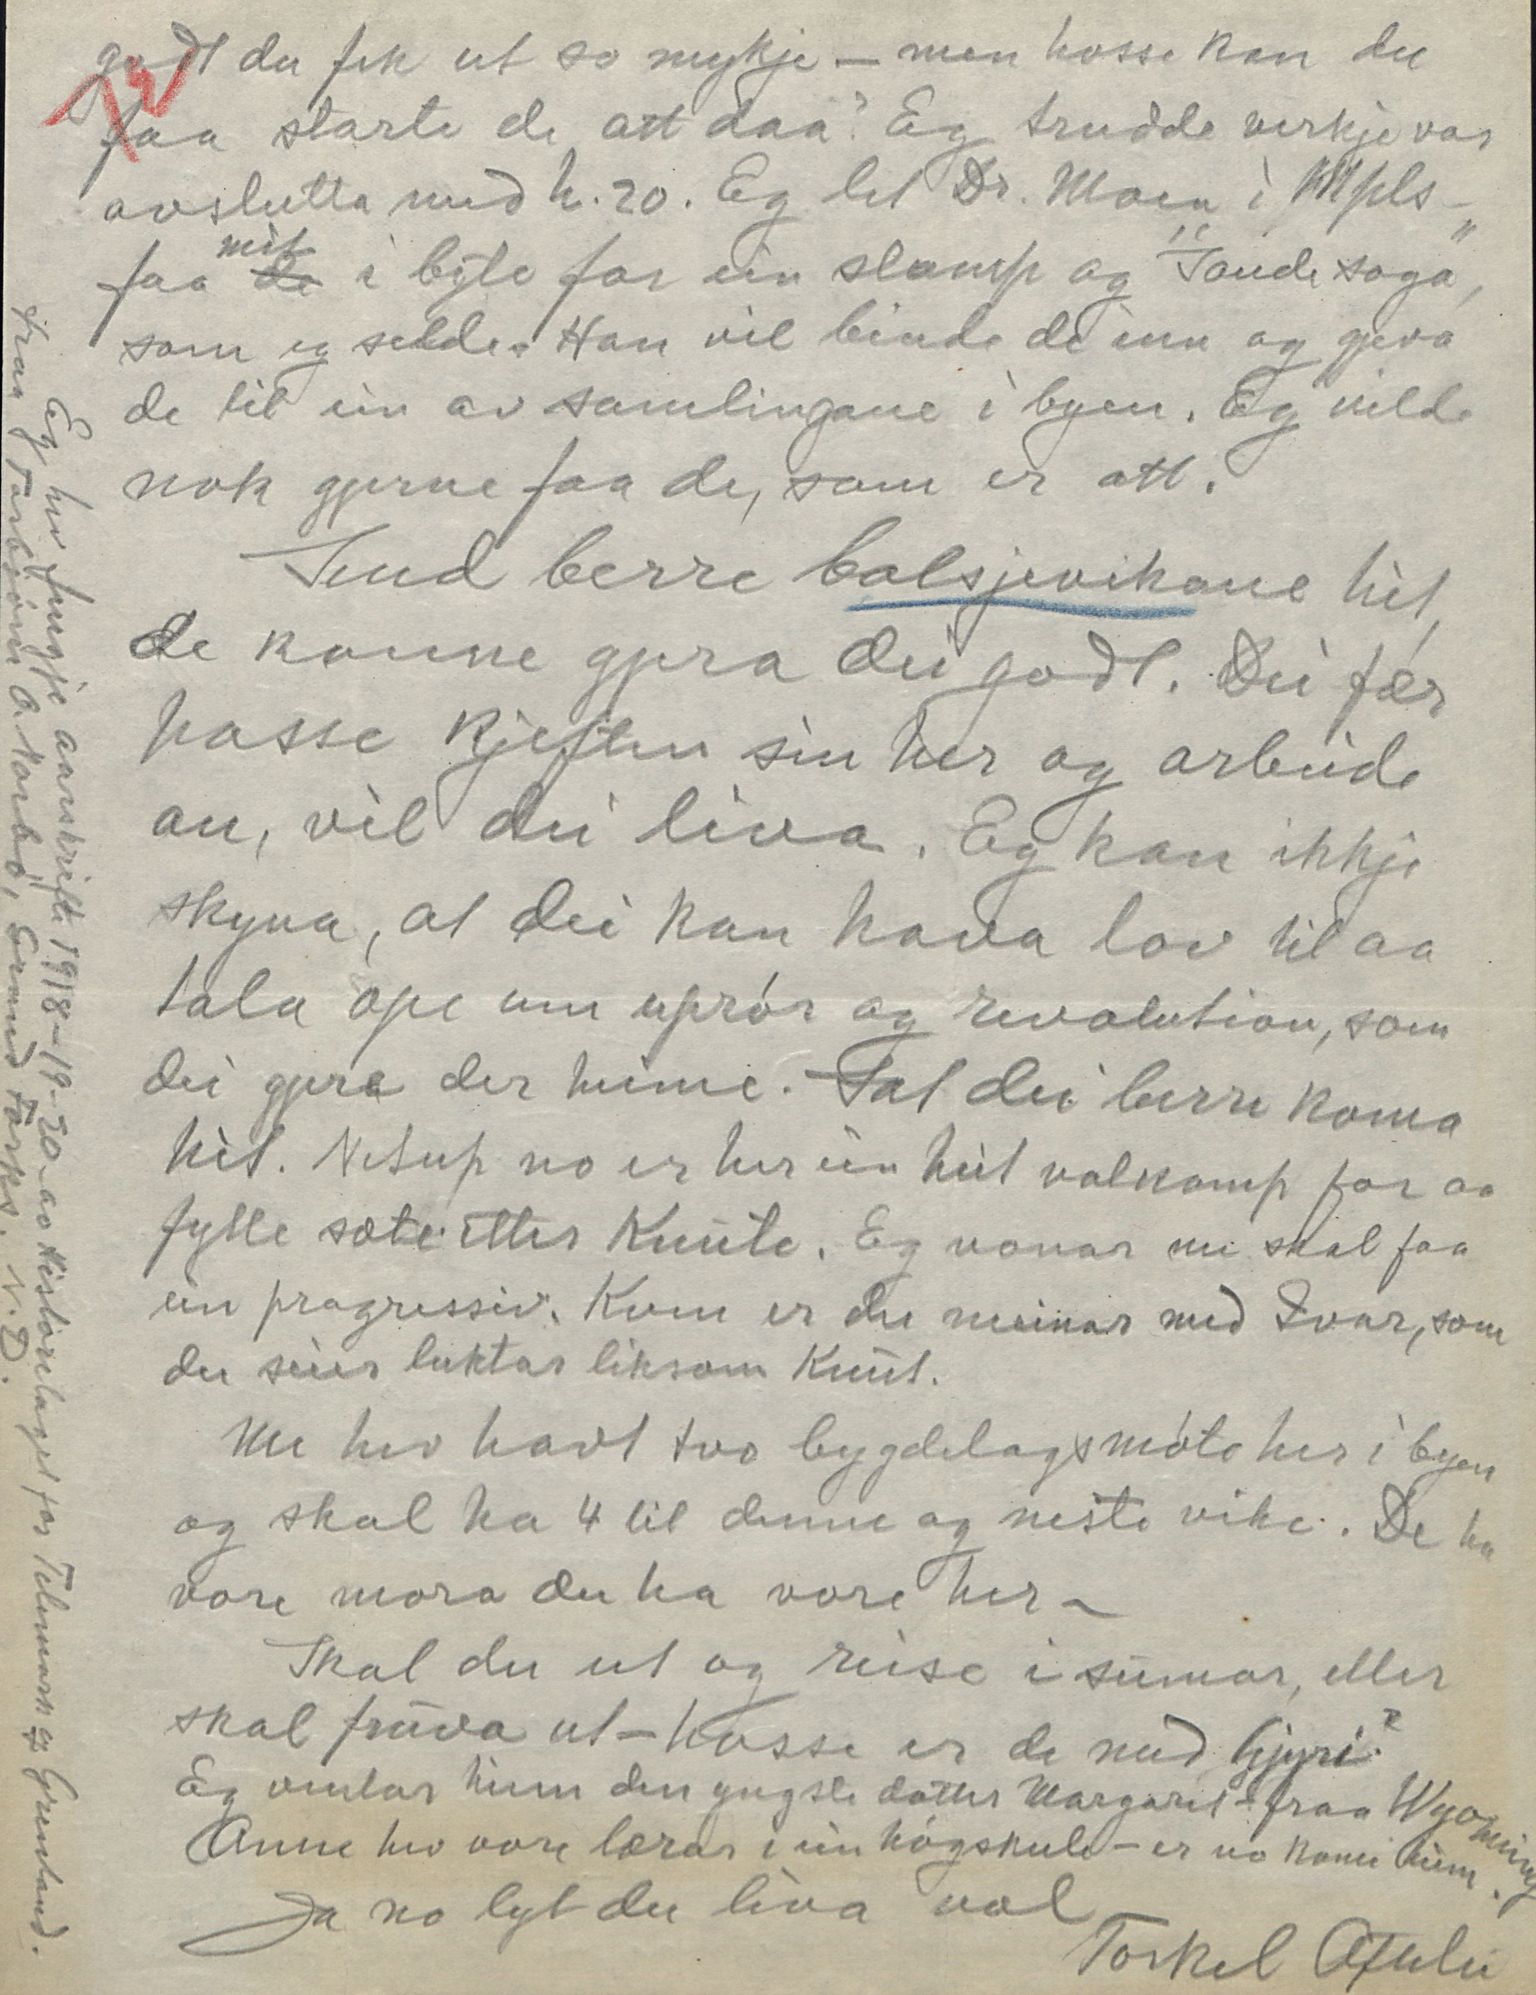 godt du fek ut so mykje — men hosse kan du
faa starte de att daa? Eg trudde verkje var
avslutta med h. 20. Eg let Dr. Moen i Mpls -
faa mit i byte for ein slump av "Saude soga",
som eg selde. Han vil binde de inn og gjeva
de til ein av samlingane i byen. Eg vilde
nok gjerne faa de, som er att.
Send berre bolsjevikane hit,
de kunne gjera dei godt. Dei fær
passe kjeften sin her og arbeide
an, vil dei liva. Eg kan ikkje
skyna, at dei kan hava lov til aa
tala ope um uprör og revolution, som
dei gjere der heime. Lat dei berre koma
hit. Netup no er her ein heit valkamp for aa
fylle sæte etter Knute. Eg vonar me skal faa
ein progressiv. Kven er du meinar med Ivar, som
du seier luktar liksom Knut.
Me hev havt tvo bygdelagsmöte her i byen
og skal ha 4 til denne og neste vike. De ha
vore mora du ha vore her —
Skal du ut og reise i sumar, eller
skal fruva ut — hosse er de med Gjyri?
Eg ventar heim den yngste dotter Margaret - fraa Wyoming
Anne hev vore lærar i ein högskule — er no komi heim.
Ja no lyt du liva vel
Torkel Oftelie
Eg hev fengje aarskrifti 1918-19-20 av Historielaget for Telemark og Grenland.
fraa Torbjörn A. Norbö, Grand Forks, N. D.
12